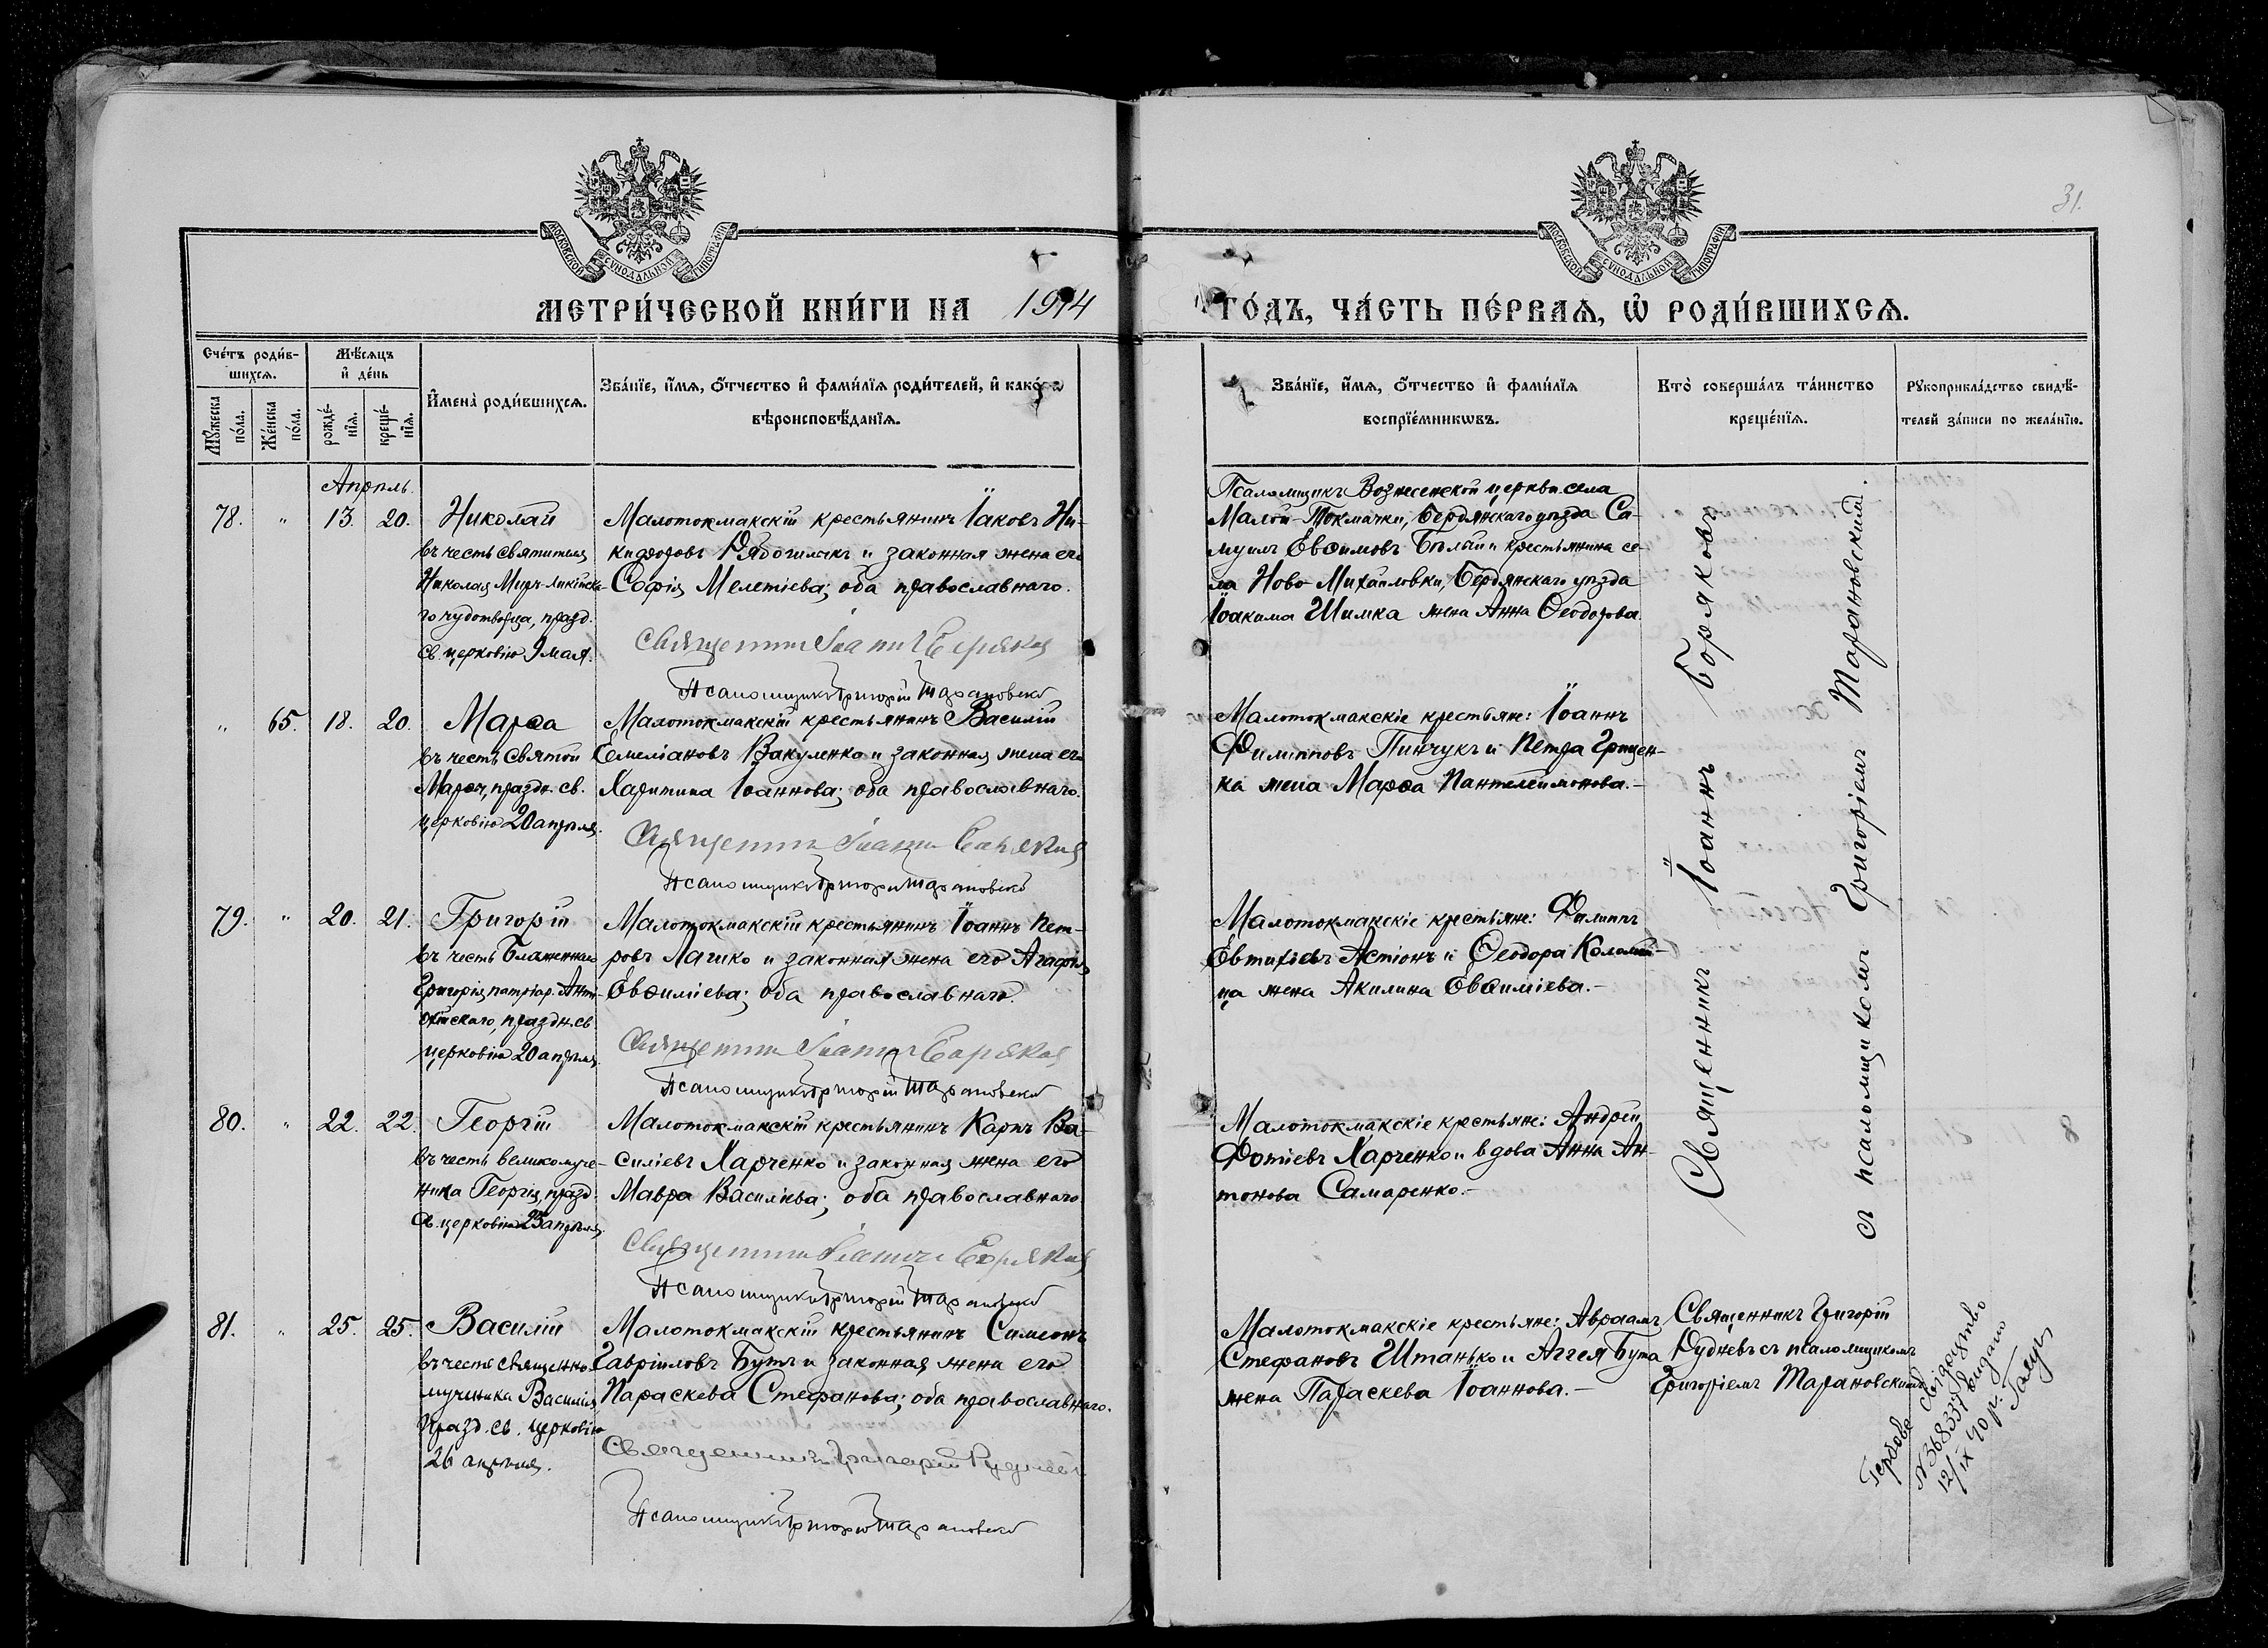 31.
МОСКОВСКОЙ СѴНОДАЛЬНОЙ ТИПОГРАФІИ
МОСКОВСКОЙ СѴНОДАЛЬНОЙ ТИПОГРАФІИ
МЕТРИ́ЧЕСКОЙ КНИ́ГИ НА 1914
ГО́ДЪ, ЧА́СТЬ ПЕ́РВАЯ, Ѡ РОДИ́ВШИХСЯ.
Сче́тъ роди́в-
шихся.
Мѣ́сяцъ
и де́нь
Му́жеска
по́ла.
Же́нска
по́ла.
рожде́-
нія.
креще́-
нія.
Имена̀ роди́вшихся.
Зва́ніе, и́мя, о́тчество и фами́лія роди́телей, и како́гѡ
вѣроисповѣ́данія.
Зва́ніе, и́мя, о́тчество и фами́лія
воспріе́мникѡвъ.
Кто̀ соверша́лъ та́инство
креще́нія.
Рукоприкла́дство свидѣ́-
телей за́писи по жела́нію.
Апрѣль.
78. " 13. 20. Николай
въ честь святителя
Николая Мирь-Ликійска-
го чудотворца, празд.
св. церковію 9 мая.
Малотокмакскій крестьянинъ Іаковъ Ни-
кифоровъ и законная жена его
Софія Мелетіева; оба православнаго.
Священникъ Іоаннъ Боряковъ
Псаломщикъ Григорій Тарановскій
Псаломщикъ Вознесенской церкви села
Малой-Токмачки, Бердянскаго уѣзда Са-
муилъ Евѳимовъ Бѣлый и крестьянина се-
ла Ново Михайловки, Бердянскаго уѣзда
Іоакима Шимка жена Анна Ѳеодорова.
" 65. 18. 20. Марѳа
въ честь святой
Марѳы, праздн. св.
церковію 20 апрѣля.
Малотокмакскій крестьянинъ Василій
Емеліановъ Вакуленко и законная жена его
Харитина Іоаннова; оба православнаго.
Священникъ Іоаннъ Боряковъ
Псаломщикъ Григорій Тарановскій
Малотокмакскіе крестьяне: Іоаннъ
Филипповъ Пинчукъ и Петра Грицен-
ка жена Марѳа Пантелеимонова.-
79. " 20. 21. Григорій
въ честь Блаженнаго
Григорія, патріар. Анті-
охійскаго, праздн. св.
церковію 20 апрѣля
Малотокмакскій крестьянинъ Іоаннъ Пет-
ровъ Лагино и законная жена его Агафія
Евѳиміева; оба православнаго.
Священникъ Іоаннъ Боряковъ
Псаломщикъ Григорій Тарановскій
Малотокмакскіе крестьяне: Филиппъ
Евтихіевъ Астіонъ и Ѳеодора Коломій-
ца жена Акилина Евѳиміева.-
80. " 22. 22. Георгій
въ честь великомуче-
ника Георгія, празд.
св. церковію 23 апрѣля.
Малотокмакскій крестьянинъ Карпъ Ва-
силіевъ Харченко и законная жена его
Мавра Василіева; оба православнаго.
Священникъ Іоаннъ Боряковъ
Псаломщикъ Григорій Тарановскій
Малотокмакскіе крестьяне: Андрей
Фотіевъ Харченко и вдова Анна Ан-
тонова Самаренко.-
Священникъ Іоаннъ Боряковъ
съ псаломщикомъ Григоріемъ Тарановскимъ.
81. " 25. 25. Василій
въ честь священно-
мученика Василія,
празд. св. церковію
26 апрѣля.
Малотокмакскій крестьянинъ Симеонъ
Гавріиловъ Бутъ и законная жена его
Параскева Стефанова; оба православнаго.
Священникъ Григорій Рудневъ
Псаломщикъ Григорій Тарановскій
Малотокмакскіе крестьяне: Авраамъ
Стефановъ Штанько и Аггея Бута
жена Параскева Іоаннова.-
Священникъ Григорій
Рудневъ съ псаломщикомъ
Григоріемъ Тарановскимъ
Гербове свідоцтво
N 368337 видано
12/IX 40 р.